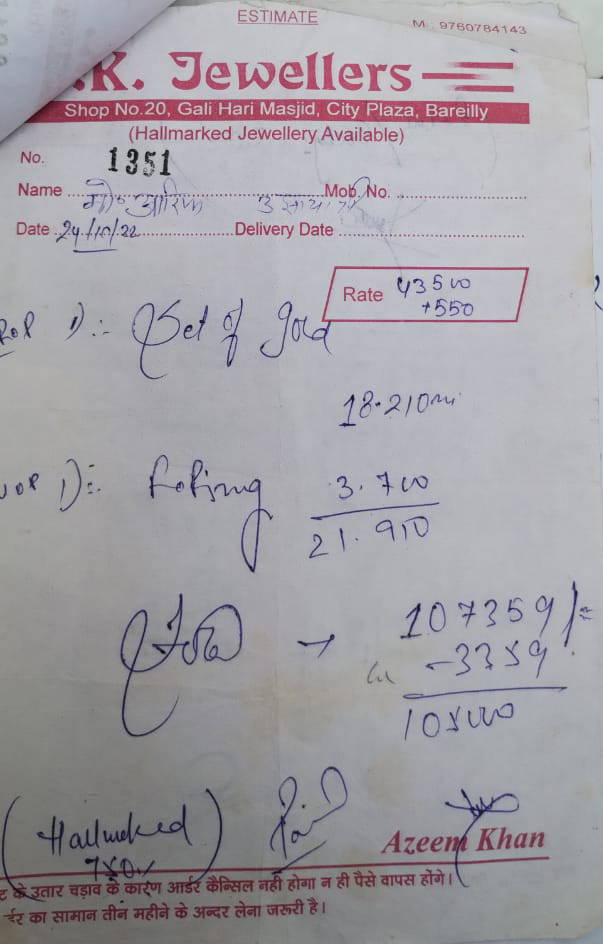 ESTIMATE
M : 9760784143
.K. Jewellers
Shop No.20, Gali Hari Masjid, City Plaza, Bareilly
(Hallmarked Jewellery Available)
No. 1351
Name मो० आरिफ Mob. No.
Date 24/10/22 Delivery Date
Rate 43500
+550
1):- Set of gold
18.210
1):-
3.700
21.910
Total → 107359/=
-3359
(Hallmarked)
Paid
Azeem Khan
के उतार चड़ाव के कारण आर्डर कैन्सिल नही होगा न ही पैसे वापस होंगे।
र्डर का सामान तीन महीने के अन्दर लेना जरूरी है।